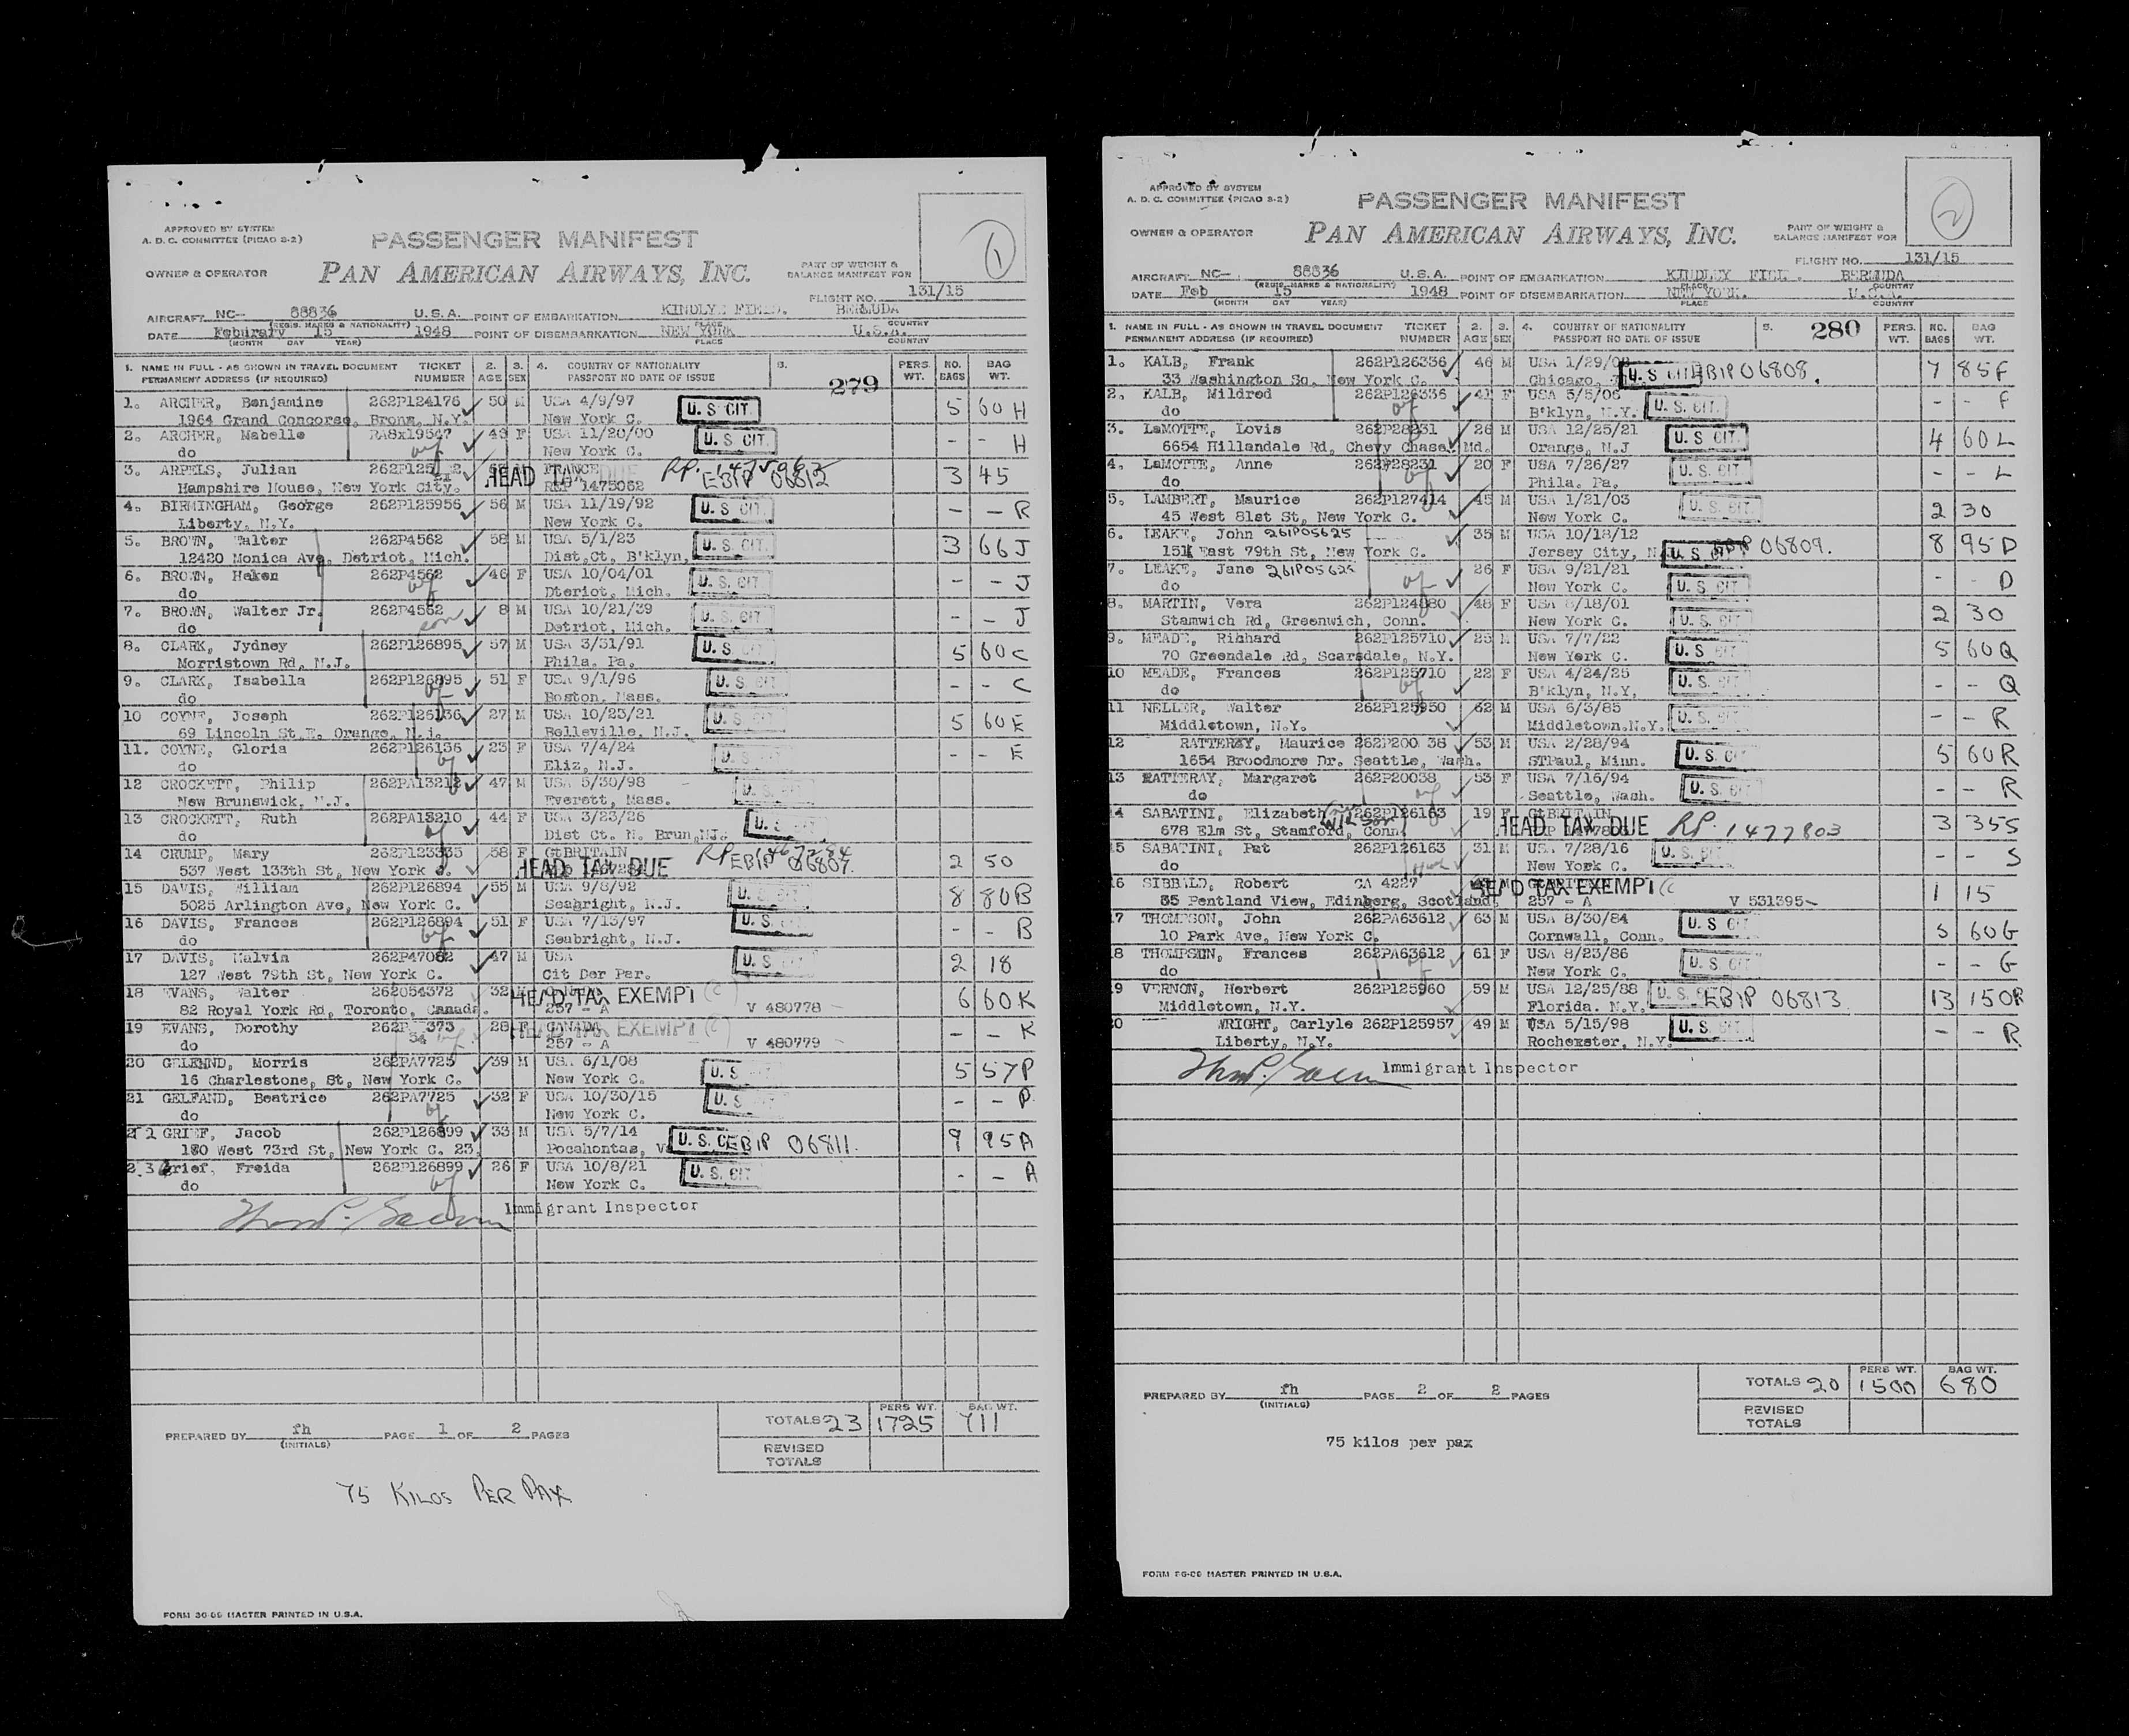 APPROVED BY SYSTEM
A. D. C. COMMITTEE (PICAO S-2)
PASSENGER MANIFEST
1
OWNER & OPERATOR
PAN AMERICAN AIRWAYS, INC.
PART OF WEIGHT &
BALANCE MANIFEST FOR
FLIGHT NO. 131/15
AIRCRAFT NC- 88836 U.S.A. POINT OF EMBARKATION KINDLY FIELD. BERMUDA
(REGIS. MARKS & NATIONALITY) PLACE COUNTRY
DATE Feburary 15 1948 POINT OF DISEMBARKATION NEW YORK U.S.A.
(MONTH DAY YEAR) PLACE COUNTRY
1. NAME IN FULL - AS SHOWN IN TRAVEL DOCUMENT TICKET 2. 3. 4. COUNTRY OF NATIONALITY 5. PERS. NO. BAG
PERMANENT ADDRESS (IF REQUIRED) NUMBER AGE SEX PASSPORT NO DATE OF ISSUE 279 WT. BAGS WT.
1. ARCHER, Benjamine 262P124176 50 M USA 4/9/97 U. S. CIT. 5 60 H
1964 Grand Concorse, Bronx, N.Y. New York C.
2. ARCHER, Mabelle RA8x19547 43 F USA 11/20/00 U. S. CIT. - - H
do New York C.
3. ARPELS, Julian HEAD TAX DUE EBIP 06812 3 45
Hampshire House, New York City. REP 1475062
4. BIRMINGHAM, George 262P125956 56 M USA 11/19/92 U. S. CIT. - - R
Liberty, N.Y. New York C.
5. BROWN, Walter 262P4562 58 M USA 5/1/23 U. S. CIT. 3 66 J
12420 Monica Ave, Detriot, Mich. Dist.Ct, B'klyn,
6. BROWN, Helen 262P4562 46 F USA 10/04/01 U. S. CIT. - - J
do Dteriot, Mich.
7. BROWN, Walter Jr. 262P4562 son 8 M USA 10/21/39 U. S. CIT. - - J
do Detriot, Mich.
8. CLARK, Jydney 262P126895 57 M USA 3/31/91 U. S. 5 60 C
Morristown Rd, N.J. Phila. Pa.
9. CLARK, Isabella 262P126895 51 F USA 9/1/96 U. S. - - C
do Boston, Mass.
10 COYNE, Joseph 262P126136 27 M USA 10/23/21 U. S. CIT. 5 60 E
69 Lincoln St.E. Orange, N.j. Belleville, N.J.
11. COYNE, Gloria 262P126136 23 F USA 7/4/24 U. S. CIT. - - E
do Eliz, N.J.
12 CROCKETT, Philip 262PA13212 47 M USA 5/30/98 U. S.
New Brunswick, N.J. Everett, Mass.
13 CROCKETT, Ruth 262PA13210 44 F USA 3/23/26 U. S.
do Dist Ct. N. Brun,NJ.
14 CRUMP, Mary 262P123335 58 F GtBRITAIN 2 50
537 West 133th St, New York C. HEAD TAX DUE EBIP 06807.
15 DAVIS, William 262P126894 55 M USA 9/8/92 U. S. 8 80 B
5025 Arlington Ave, New York C. Seabright, N.J.
16 DAVIS, Frances 262P126894 51 F USA 7/13/97 U. S. - - B
do Seabright, N.J.
17 DAVIS, Malvin 262P47062 47 M USA U. S. 2 18
127 West 79th St, New York C. Cit Der Par.
18 EVANS, Walter 262054372 32 HEAD TAX EXEMPT (C) 6 60 K
82 Royal York Rd, Toronto, Canada. 257 - A V 480778
19 EVANS, Dorothy 28 F CANADA HEAD TAX EXEMPT (C) - - K
do 257 - A V 480779
20 GELFAND, Morris 262PA7725 39 M USA 6/1/08 U. S 5 57 P
16 Charlestone, St, New York C. New York C.
21 GELFAND, Beatrice 262PA7725 32 F USA 10/30/15 U. S - - P
do New York C.
22 GRIEF, Jacob 262P126899 33 M USA 5/7/14 U. S. C EBIP 06811. 9 95 A
180 West 73rd St, New York C. 23, Pocahontas, V
23 Grief, Freida 262P126899 26 F USA 10/8/21 U. S. CIT. - - A
do New York C.
Immigrant Inspector
PERS WT. BAG WT.
TOTALS 23 1725 711
PREPARED BY fh PAGE 1 OF 2 PAGES
(INITIALS)
REVISED
TOTALS
75 KILOS PER PAX
FORM 36-09 MASTER PRINTED IN U.S.A.
APPROVED BY SYSTEM
A. D. C. COMMITTEE (PICAO S-2)
PASSENGER MANIFEST
2
OWNER & OPERATOR
PAN AMERICAN AIRWAYS, INC.
PART OF WEIGHT &
BALANCE MANIFEST FOR
FLIGHT NO. 131/15
AIRCRAFT NC- 88836 U.S.A. POINT OF EMBARKATION KINDLEY FIELD. BERMUDA
(REGIS. MARKS & NATIONALITY) PLACE COUNTRY
DATE Feb 15 1948 POINT OF DISEMBARKATION NEW YORK. U.S.A.
(MONTH DAY YEAR) PLACE COUNTRY
1. NAME IN FULL - AS SHOWN IN TRAVEL DOCUMENT TICKET 2. 3. 4. COUNTRY OF NATIONALITY 5. PERS. NO. BAG
PERMANENT ADDRESS (IF REQUIRED) NUMBER AGE SEX PASSPORT NO DATE OF ISSUE 280 WT. BAGS WT.
1. KALB, Frank 262P126336 46 M USA 7 85 F
33 Washington Sq, New York C. Chicago, U. S CIT EBIP 06808.
2. KALB, Mildred 262P126336 41 F USA 5/5/06 - - F
do B'klyn, N.Y. U. S. CIT.
3. LaMOTTE, Lovis 262P28231 26 M USA 12/25/21 4 60 L
6654 Hillandale Rd, Chevy Chase, Md. Orange, N.J U. S CIT.
4. LaMOTTE, Anne 262P28231 20 F USA 7/26/27 U. S. CIT - - L
do Phila. Pa.
5. LAMBERT, Maurice 262P127414 45 M USA 1/21/03 U. S CIT. 2 30
45 West 81st St, New York C. New York C.
6. LEAKE, John 261P05625 35 M USA 10/18/12 8 95 D
151 East 79th St, New York C. Jersey City, N U. S 06809.
7. LEAKE, Jane 261P05625 26 F USA 9/21/21 - - D
do New York C. U. S. CIT
8. MARTIN, Vera 262P124880 46 F USA 8/18/01 2 30
Stamwich Rd, Greenwich, Conn. New York C. U. S.
9. MEADE, Rihhard 262P125710 25 M USA 7/7/22 5 60 Q
70 Greendale Rd, Scarsdale, N.Y. New York C. U. S
10 MEADE, Frances 262P125710 22 F USA 4/24/25 - - Q
do B'klyn, N.Y, U. S.
11 NELLER, Walter 262P125950 62 M USA 6/3/85 - - R
Middletown, N.Y. Middletown.N.Y. U. S
12 RATTERAY, Maurice 262P200 38 53 M USA 2/28/94 5 60 R
1654 Broodmore Dr. Seattle, Wash. STPaul, Minn. U. S. C
13 RATTERAY, Margaret 262P20038 53 F USA 7/16/94 - - R
do Seattle, Wash. U. S. CIT
14 SABATINI, Elizabeth 262P126163 19 F GtBRITAIN 3 35 S
678 Elm St, Stamford, Conn. HEAD TAX DUE RP. 1477803
15 SABATINI, Pat 262P126163 31 M USA 7/28/16 U. S. - - S
do New York C.
16 SIBBALD, Robert CA 4227 HEAD TAX EXEMPT (C 1 15
35 Pentland View, Edinberg, Scotland, 257 - A V 531395
17 THOMPSON, John 262PA63612 63 M USA 8/30/84 U. S 5 60 G
10 Park Ave, New York C. Cornwall, Conn.
18 THOMPSON, Frances 262PA63612 61 F USA 8/23/86 U. S. - - G
do New York C.
19 VERNON, Herbert 262P125960 59 M USA 12/25/88 U. S. EBIP 06813 13 150 R
Middletown, N.Y. Florida. N.Y.
20 WRIGHT, Carlyle 262P125957 49 M USA 5/15/98 U. S. - - R
Liberty, N.Y. Rochester, N.Y.
Immigrant Inspector
PERS WT. BAG WT.
TOTALS 20 1500 680
PREPARED BY fh PAGE 2 OF 2 PAGES
(INITIALS)
REVISED
TOTALS
75 kilos per pax
FORM 36-09 MASTER PRINTED IN U.S.A.